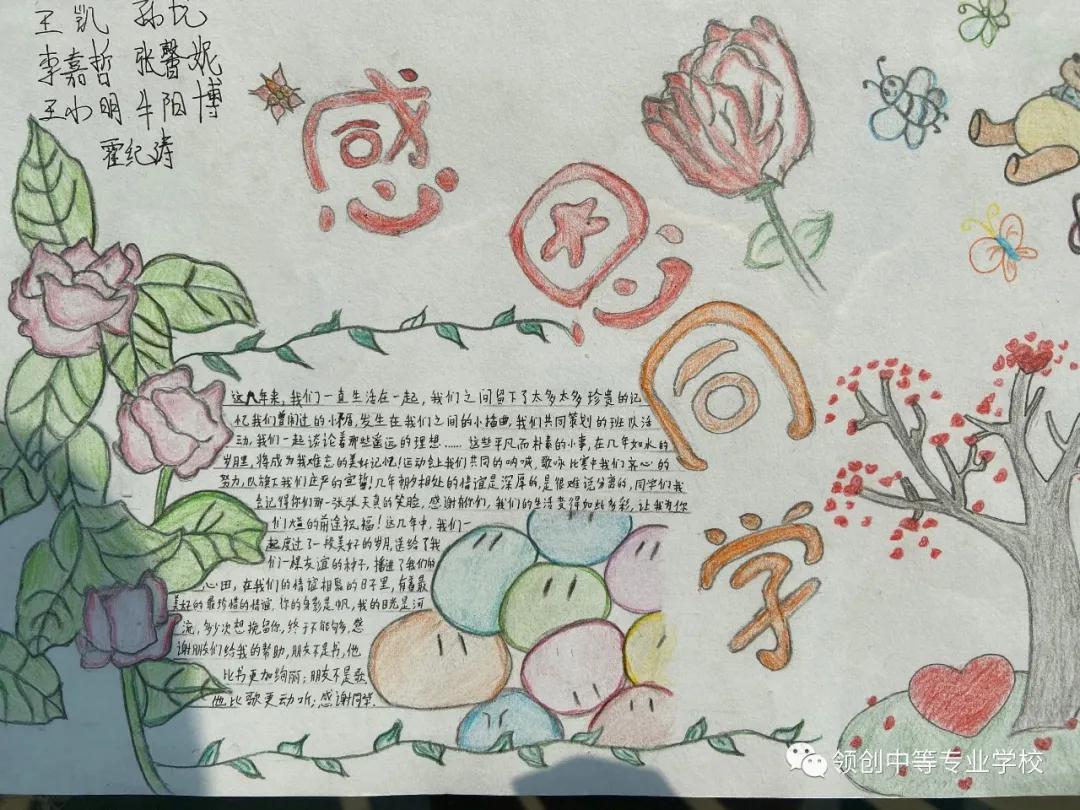 王凯 孙尤
李嘉哲 张馨妮
王小明 牛阳博
霍纪涛
感恩同学
这几年来,我们一直生活在一起,我们之间留下了太多太多珍贵的记
忆我们曾闹过的小矛盾,发生在我们之间的小插曲,我们共同策划的班队活
动,我们一起谈论着那些遥远的理想……这些平凡而朴素的小事,在几年如水的
岁月里,将成为我难忘的美好记忆!运动会上我们共同的呐喊,歌咏比赛中我们齐心的
努力,队旗下我们庄严的宣誓!几年朝夕相处的情谊是深厚的,是很难说分离的,同学们我
会记得你们那一张张天真的笑脸,感谢你们,我们的生活变得如此多彩,让我为你
们大蓝的前途祝福!这几年中,我们一
起度过了一段美好的岁月,送给了我
们一棵友谊的种子,播进了我们的
心田,在我们的情谊相思的日子里,有着最
美好的最珍惜的情谊.你的身影是帆,我的目光是河
流,多少次想挽留你,终于不能够,感
谢朋友们给我的帮助,朋友不是书,他
比书更加绚丽;朋友不是歌
他比歌更动听;感谢同学.
领创中等专业学校